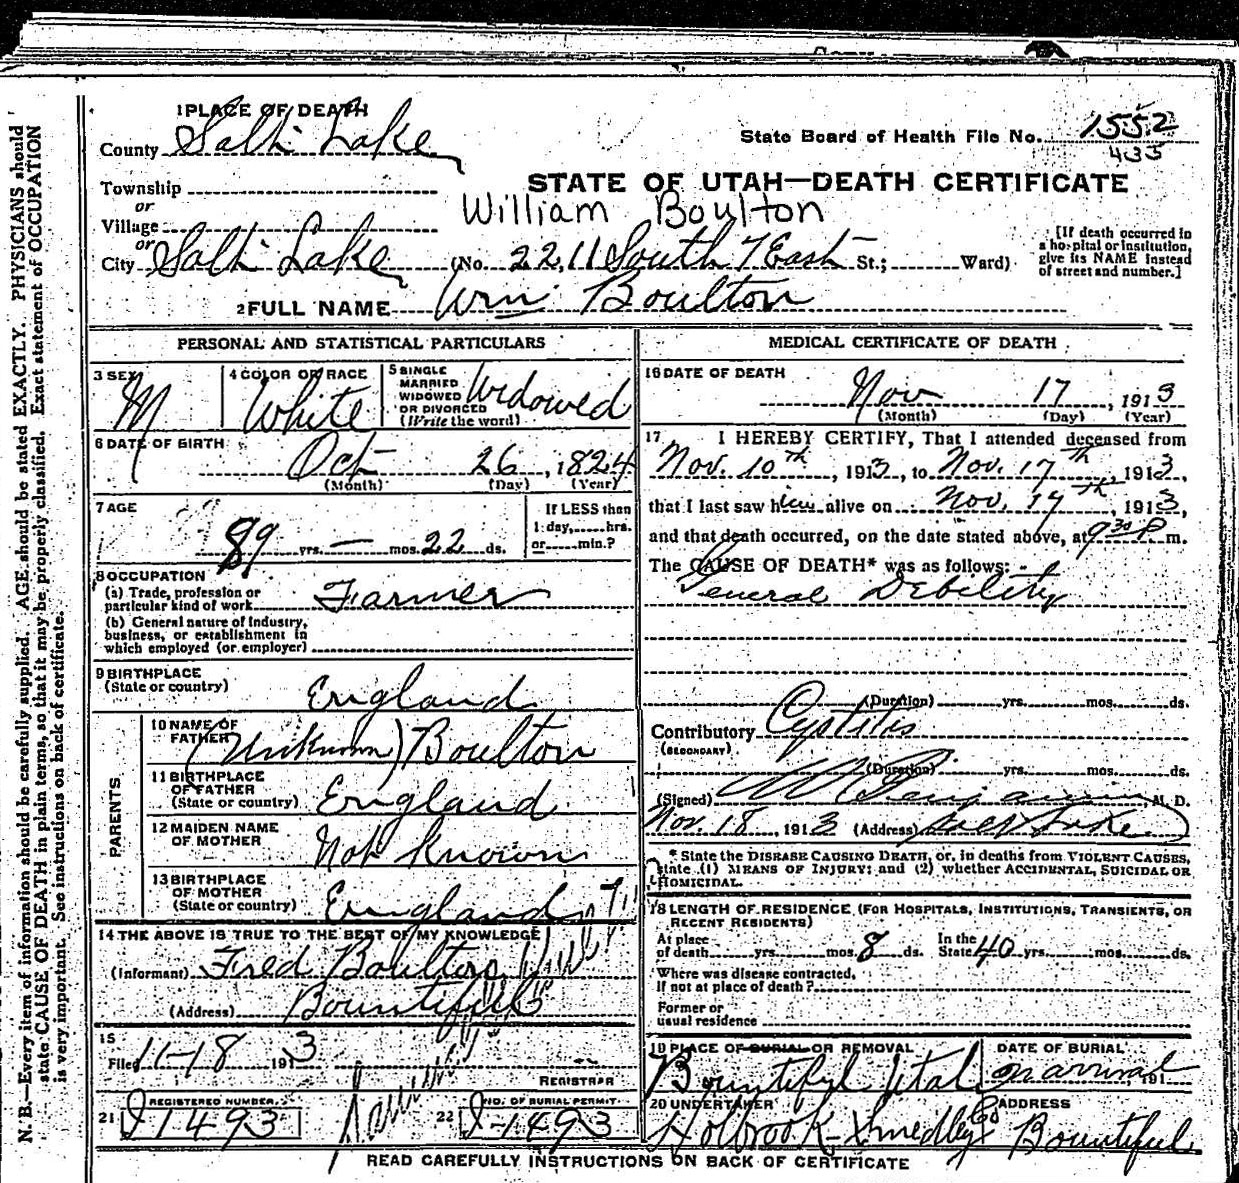 1 PLACE OF DEATH
County Salt Lake
State Board of Health File No. 1552
435
Township
or
Village
or
City Salt Lake (No. 2211 South 7 East St.; Ward)
STATE OF UTAH—DEATH CERTIFICATE
William Boulton
[If death occurred in
a hospital or institution,
give its NAME instead
of street and number.]
2 FULL NAME Wm Boulton
PERSONAL AND STATISTICAL PARTICULARS
3 SEX M
4 COLOR OR RACE White
5 SINGLE
MARRIED
WIDOWED
OR DIVORCED
(Write the word) Widowed
6 DATE OF BIRTH
Oct 26, 1824
(Month) (Day) (Year)
7 AGE
89 yrs. — mos. 22 ds.
If LESS than
1 day, hrs.
or min.?
8 OCCUPATION
(a) Trade, profession or
particular kind of work Farmer
(b) General nature of Industry,
business, or establishment in
which employed (or employer)
9 BIRTHPLACE
(State or country) England
PARENTS
10 NAME OF
FATHER (Unknown) Boulton
11 BIRTHPLACE
OF FATHER
(State or country) England
12 MAIDEN NAME
OF MOTHER Not Known
13 BIRTHPLACE
OF MOTHER
(State or country) England
14 THE ABOVE IS TRUE TO THE BEST OF MY KNOWLEDGE
(Informant) Fred Boulton
(Address) Bountiful
15
Filed 11-18 1913
REGISTRAR
21 REGISTERED NUMBER. 1493
22 NO. OF BURIAL PERMIT. 1493
MEDICAL CERTIFICATE OF DEATH
16 DATE OF DEATH
Nov 17, 1913
(Month) (Day) (Year)
17 I HEREBY CERTIFY, That I attended deceased from
Nov. 10th, 1913, to Nov. 17th 1913,
that I last saw him alive on Nov. 17th, 1913,
and that death occurred, on the date stated above, at 9 30 P m.
The CAUSE OF DEATH* was as follows:
General Debility
(Duration) yrs. mos. ds.
Contributory Cystitis
(SECONDARY)
(Duration) yrs. mos. ds.
(Signed) Benjamin M. D.
Nov. 18, 1913 (Address) Salt Lake
* State the DISEASE CAUSING DEATH, or, in deaths from VIOLENT CAUSES,
state (1) MEANS OF INJURY; and (2) whether ACCIDENTAL, SUICIDAL OR
HOMICIDAL.
18 LENGTH OF RESIDENCE (FOR HOSPITALS, INSTITUTIONS, TRANSIENTS, OR
RECENT RESIDENTS)
At place
of death yrs. mos. 8 ds.
In the
State 40 yrs. mos. ds.
Where was disease contracted,
If not at place of death?
Former or
usual residence
19 PLACE OF BURIAL OR REMOVAL
Bountiful Utah
DATE OF BURIAL
on arrival, 191
20 UNDERTAKER
Holbrook-Smedley Co
ADDRESS
Bountiful
READ CAREFULLY INSTRUCTIONS ON BACK OF CERTIFICATE
N. B.—Every item of information should be carefully supplied. AGE should be stated EXACTLY. PHYSICIANS should
state CAUSE OF DEATH in plain terms, so that it may be properly classified. Exact statement of OCCUPATION
is very important. See instructions on back of certificate.